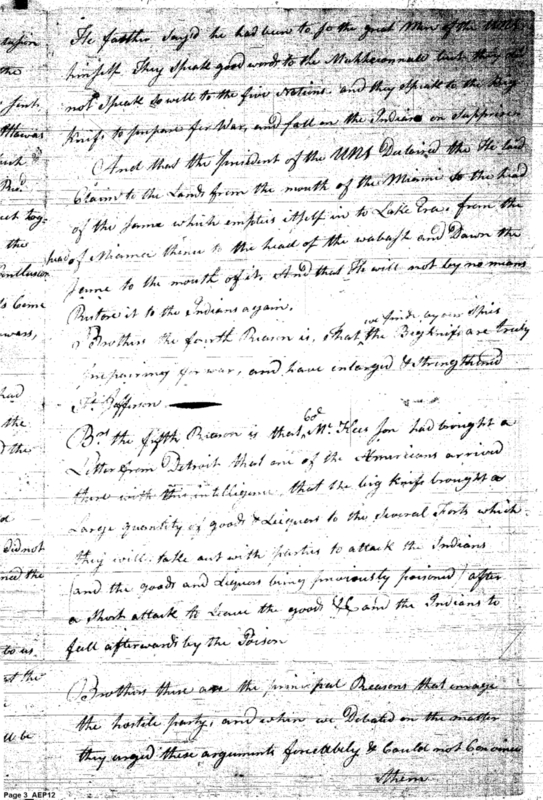 He farther say'd he had been to so the great Man of the UNS
himself. They Speak good words to the Muhheconnuk but they do
not Speak so will to the five Nations. and they Speak to the Big
Knifs to prepare for War, and fall on the Indians on Supprise
And that the president of the UNS Declaired the He laid
Claim to the Lands from the mouth of the Miamie to the head
of the Same which empties itself in to Lake Erae from the
head of Miamie thence to the head of the wabash and Down the
Same to the mouth of it. And that He will not by no means
Restore it to the Indians again.
Brothers the fourth Reason is, That we finde by our Spies the Big knifs are truly
prepairing for war, and have enlarged & Strengthened
Ft Jefferson
Brs the fifth Reason is that, Mr had brought a
Letter from Detroit that one of the Americans arrived
there with this intelligence, that the big knifs brought a
Large quantity of goods & Liquors to the Several Forts which
they will take out with parties to attack the Indians
(and the goods and Liquors being previously poisoned) after
a Short attack to Leave the goods &c and the Indians to
fall afterwards by the Poison
Brothers these are the principal Reasons that
the hostile party, and when we Debated on the matter
they urged these arguments forceably & Could not Convince
them
upon
the
Sent
Ottawas
the
Come
had
the
did not
the
to us
at the
ll be
Page 3_AEP12